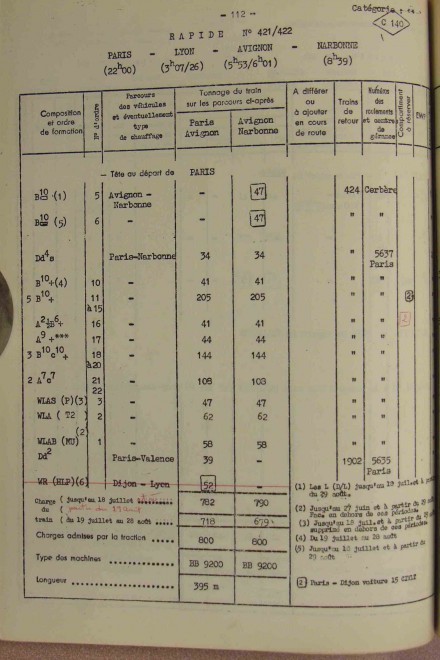 - 112 -
Catégorie
C 140
RAPIDE N° 421/422
PARIS - LYON - AVIGNON - NARBONNE
(22h00) (3h07/26) (5h53/6h01) (8h39)
Composition et ordre de formation
N° d'ordre
Parcours des véhicules et éventuellement type de chauffage
Tonnage du train sur les parcours ci-après
Paris Avignon
Avignon Narbonne
A différer ou à ajouter en cours de route
Trains de retour
Numéros des roulements et gérance
Compartiment à réserver
- Tête au départ de PARIS
B10 (1) 5 Avignon - Narbonne - 47 424 Cerbère
B10 (5) 6 - - 47 " "
Dd4s Paris-Narbonne 34 34 " 5637 Paris
B10+(4) 10 - 41 41 " "
5 B10+ 11 à 15 - 205 205 " "
16 - 41 41 " "
A9+*** 17 - 44 44 " "
3 B10c10+ 18 à 20 - 144 144 " "
2 A7c7 21 22 - 108 108 " "
WLAS (P)(3) 3 - 47 47 " "
WLA ( T2 ) (2) 2 - 62 62 " "
WLAB (MU) 1 - 58 58 " "
Dd2 Paris-Valence 39 - 1902 5635 Paris
WR (HLP)(6) Dijon - Lyon 52 -
Charge du train ( jusqu'au 18 juillet 782 790
( du 19 juillet au 28 août .... 718 679
Charges admises par la traction .... 800 800
Type des machines ............ BB 9200 BB 9200
Longueur .................... 395 m
(1) Les L (D/L) jusqu'au 18 juillet et à partir du 29 août.
(2) Jusqu'au 27 juin et à partir du en dehors de ces périodes.
(3) Jusqu'au 18 juil. et à partir du supprimé en dehors de ces périodes.
(4) Du 19 juillet au 28 août
(5) Jusqu'au 18 juillet et à partir du 29 août
2 Paris - Dijon voiture 15